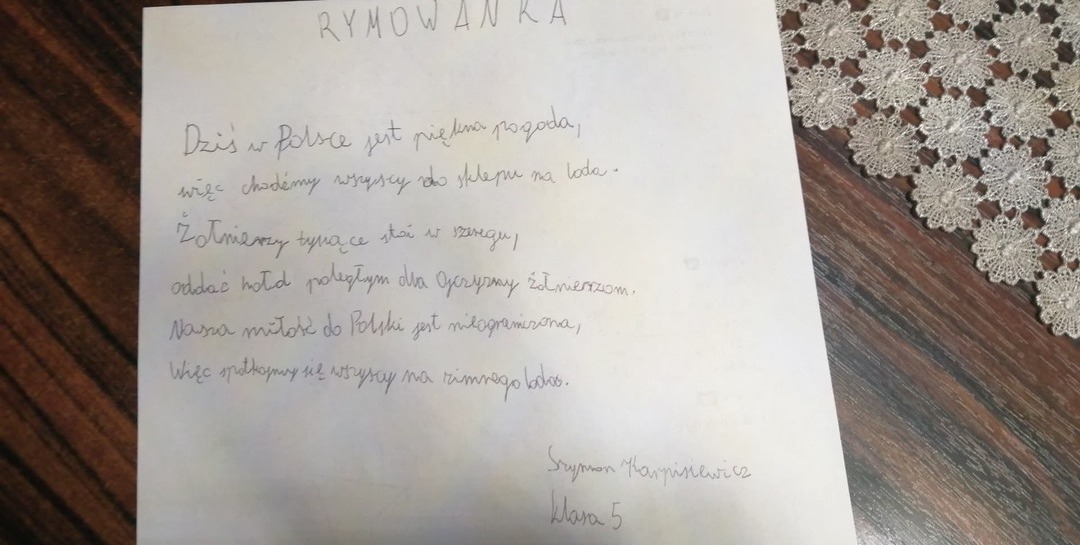 RYMOWANKA
Dziś w Polsce jest piękna pogoda,
więc chodźmy wszyscy do sklepu na loda.
Żołnierzy tysiące stoi w szeregu,
oddać hołd poległym dla Ojczyzny żołnierzom.
Nasza miłość do Polski jest nieograniczona,
Więc spotkajmy się wszyscy na zimnego loda.
Szymon Karpisiewicz
klasa 5